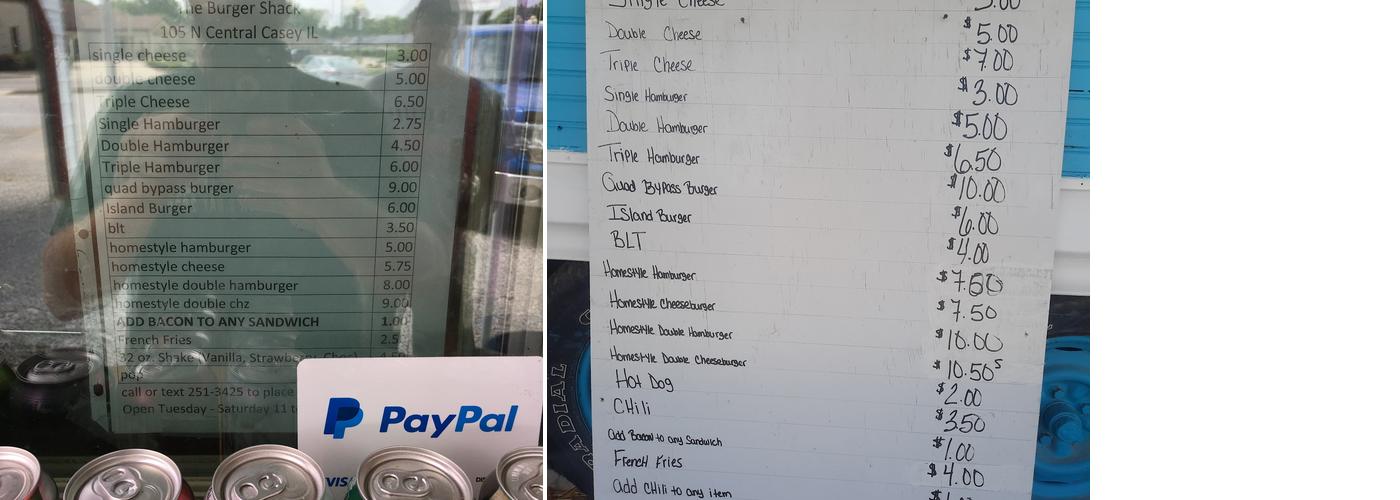 The Burger Shack
105 N Central Casey IL
single cheese 3.00
double cheese 5.00
Triple Cheese 6.50
Single Hamburger 2.75
Double Hamburger 4.50
Triple Hamburger 6.00
quad bypass burger 9.00
Island Burger 6.00
blt 3.50
homestyle hamburger 5.00
homestyle cheese 5.75
homestyle double hamburger 8.00
homestyle double chz 9.00
ADD BACON TO ANY SANDWICH 1.00
French Fries 2.5
32 oz. Shake (Vanilla, Strawberry, Choc)
pop
call or text 251-3425 to place
Open Tuesday - Saturday 11 t
PayPal
VIS
Single Cheese
Double Cheese $5.00
Triple Cheese $7.00
Single Hamburger $3.00
Double Hamburger $5.00
Triple Hamburger $6.50
Quad ByPass Burger $10.00
Island Burger $6.00
BLT $4.00
Homestyle Hamburger
Homestyle Cheeseburger $7.50
Homestyle Double Hamburger $10.00
Homestyle Double Cheeseburger $10.50
Hot Dog $2.00
CHili $3.50
add Bacon to any Sandwich $1.00
French Fries $4.00
add CHili to any item
RADIAL